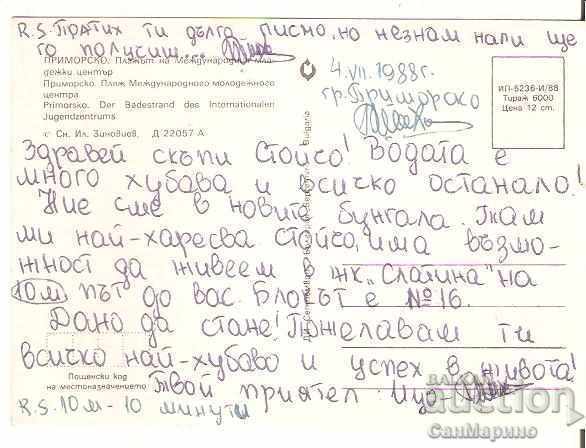 R.S. Пратих ти дълго писмо, но незнам нали ще
го получиш...
ПРИМОРСКО. Плажът на Международния мла-
дежки център
Приморско. Пляж Международного молодежного
центра
Primorsko. Der Badestrand des Internationalen
Jugendzentrums
Сн. Ил. Зиновиев. Д 22057 А
4.VII.1988г.
гр. Приморско
ИП-5236-И/88
Тираж 6000
Цена 12 ст.
Bulgaria
Здравей скъпи Стойчо! Водата е
много хубава и всичко останало!
Ние сме в новите бунгала. Там
ми най-харесва Стойчо, има възмо-
жност да живеем в жк „Слатина" на
10 м път до вас. Блокът е №16.
Дано да стане! Пожелавам ти
всичко най-хубаво и успех в живота!
Пощенски код
на местоназначението
Твой приятел: Ицо
R.S. 10 м - 10 минути
auction
СанМарино